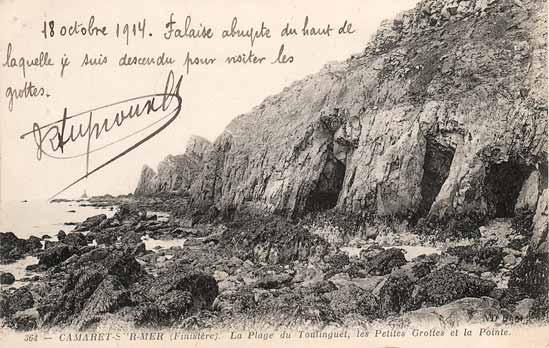 18 octobre 1914. Falaise abrupte du haut de
laquelle je suis descendu pour visiter les
grottes.
364 — CAMARET-S R-MER (Finistère). La Plage du Toulinguet, les Petites Grottes et la Pointe.
ND Phot